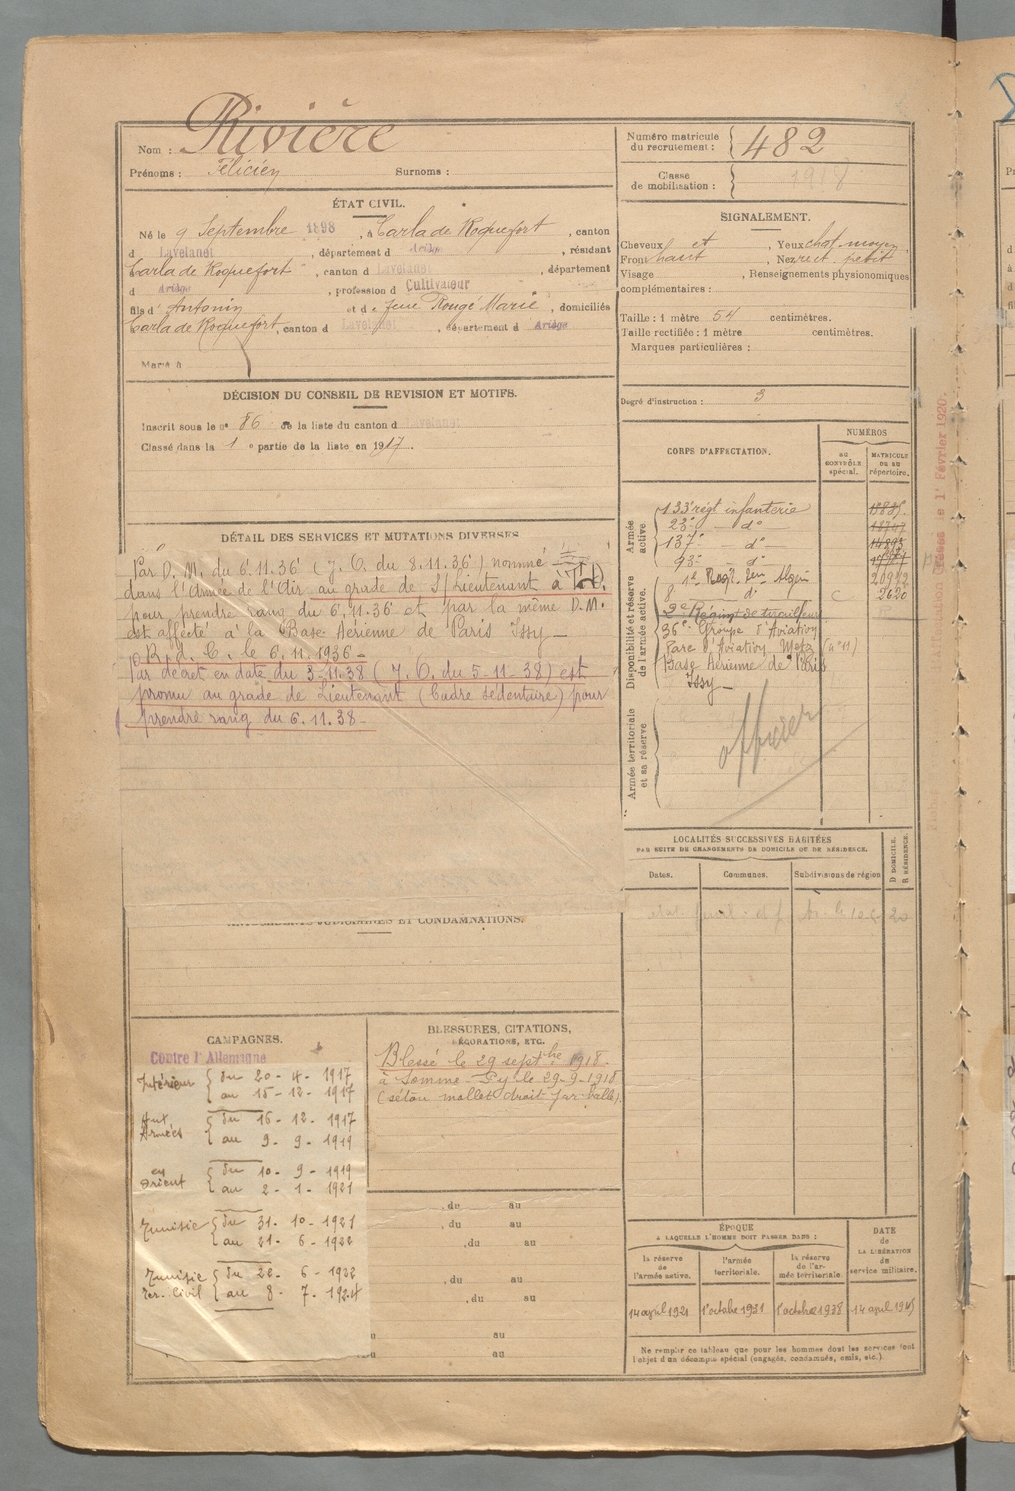 Nom : Rivière
Prénoms : Félicien Surnoms :
Numéro matricule du recrutement : 482
Classe de mobilisation : 1918
ÉTAT CIVIL.
Né le 9 Septembre 1898, à Carla de Roquefort, canton
d Lavelanet, département d Ariège, résidant
Carla de Roquefort, canton d Lavelanet, département
d Ariège, profession d Cultivateur
fils d' Antonin et de feue Rougé Marie, domiciliés
Carla de Roquefort, canton d Lavelanet, département d Ariège
Marié à
SIGNALEMENT.
Cheveux Yeux
Front haut, Nez rect. petit
Visage , Renseignements physionomiques
complémentaires :
Taille : 1 mètre 54 centimètres.
Taille rectifiée : 1 mètre centimètres.
Marques particulières :
Degré d'instruction : 3
DÉCISION DU CONSEIL DE REVISION ET MOTIFS.
Inscrit sous le n° 86 de la liste du canton d Lavelanet
Classé dans la 1e partie de la liste en 1917.
DÉTAIL DES SERVICES ET MUTATIONS DIVERSES
Par D. M. du 6.11.36 (J.O. du 8.11.36) nommé
dans l'Armée de l'Air au grade de S/Lieutenant à T.D.
pour prendre rang du 6.11.36 et par la même D.M.
est affecté à la Base Aérienne de Paris Issy _
R. d. C. le 6.11.1936 _
Par décret en date du 3-11-38 (J.O. du 5-11-38) est
promu au grade de Lieutenant (Cadre sédentaire) pour
prendre rang du 6.11.38 _
CORPS D'AFFECTATION.
NUMÉROS
au CONTRÔLE spécial.
MATRICULE OU AU répertoire.
Armée active
133e régt infanterie
23e _ d° _
137e _ d° _
93e _ d° _
Disponibilité et réserve de l'armée active.
20982
8 d° C 2620
2e Régim. de tirailleurs
36e Groupe d'Aviation
Parc d'Aviation Metz (n° 11)
Base Aérienne de Paris
Issy _
Armée territoriale et sa réserve
officier
LOCALITÉS SUCCESSIVES HABITÉES
PAR SUITE DE CHANGEMENTS DE DOMICILE OU DE RÉSIDENCE.
Dates. Communes. Subdivisions de région
D DOMICILE. R RÉSIDENCE.
ANTÉCÉDENTS JUDICIAIRES ET CONDAMNATIONS.
CAMPAGNES.
Contre l'Allemagne
Intérieur du 20 - 4 - 1917
au 15 - 12 - 1917
Aux Armées du 16 - 12 - 1917
au 9 - 9 - 1919
en Orient du 10 - 9 - 1919
au 2 - 1 - 1921
Tunisie du 31 - 10 - 1921
au 21 - 6 - 1922
Tunisie Ter. Civil du 22 - 6 - 1922
au 8 - 7 - 1924
BLESSURES, CITATIONS,
DÉCORATIONS, ETC.
Blessé le 29 septbre 1918.
à Somme-Py le 29-9-1918
(séton mollet droit par balle).
, du au
, du au
, du au
, du au
, du au
du au
du au
ÉPOQUE
A LAQUELLE L'HOMME DOIT PASSER DANS :
la réserve de l'armée active.
l'armée territoriale.
la réserve de l'armée territoriale
DATE de LA LIBÉRATION du service militaire.
14 avril 1921 1 octobre 1931 1 octobre 1938 14 avril 1945
Ne remplir ce tableau que pour les hommes dont les services font
l'objet d'un décompte spécial (engagés, condamnés, omis, etc.).